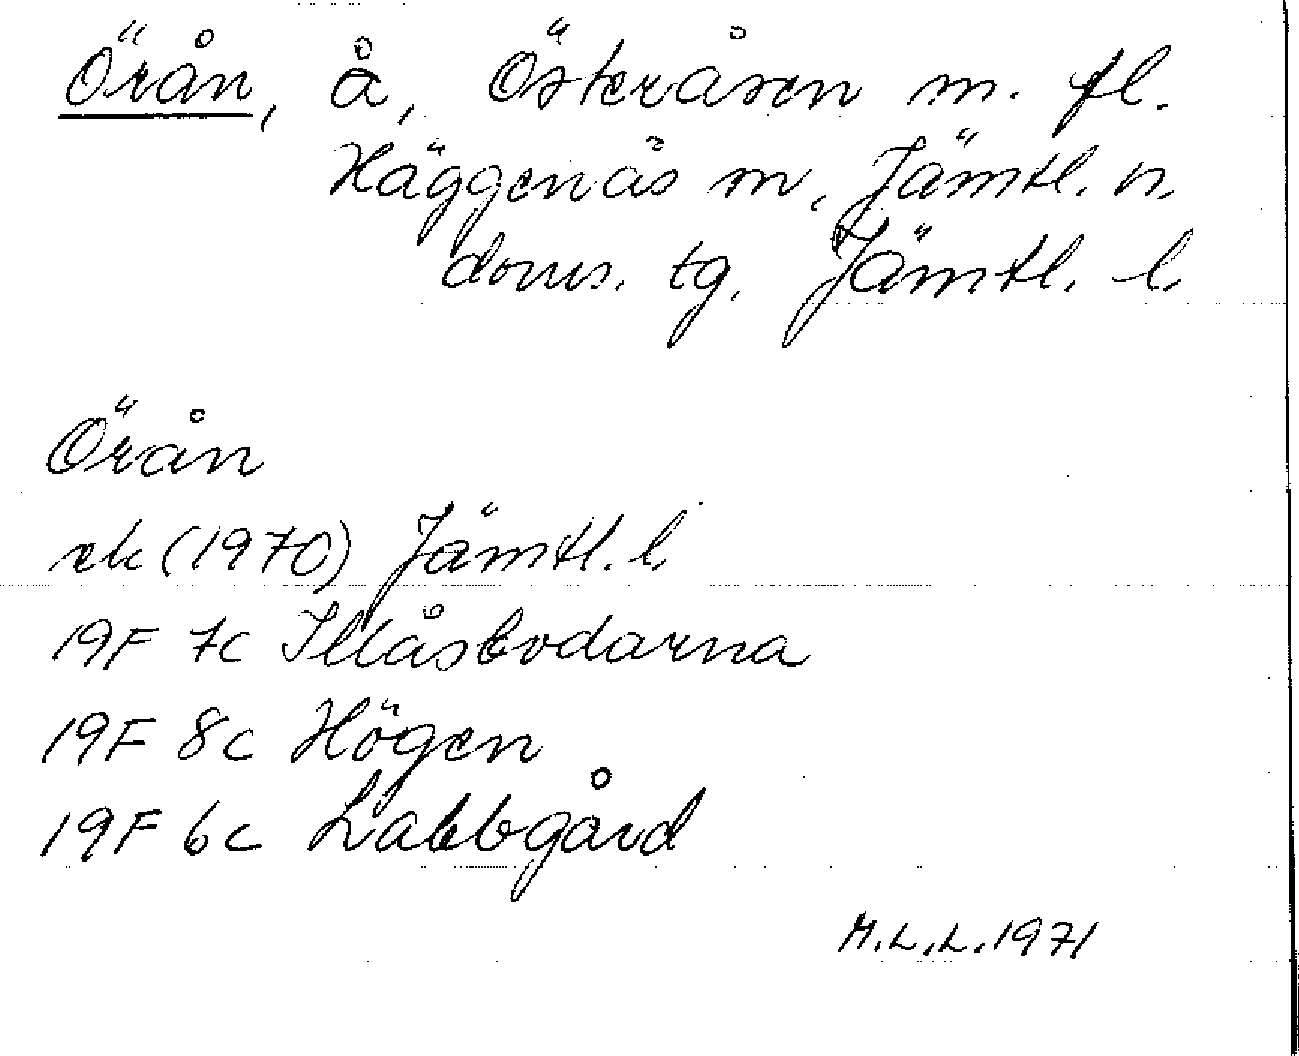 Örån, å, Österåsen m. fl.
Häggenås m. Jämtl. n
doms. tg. Jämtl. l.
Örån
ek (1970) Jämtl. l.
19F 7c Illåsbodarna
19F 8c Högen
19F 6c Labbgård
M.L.L. 1971